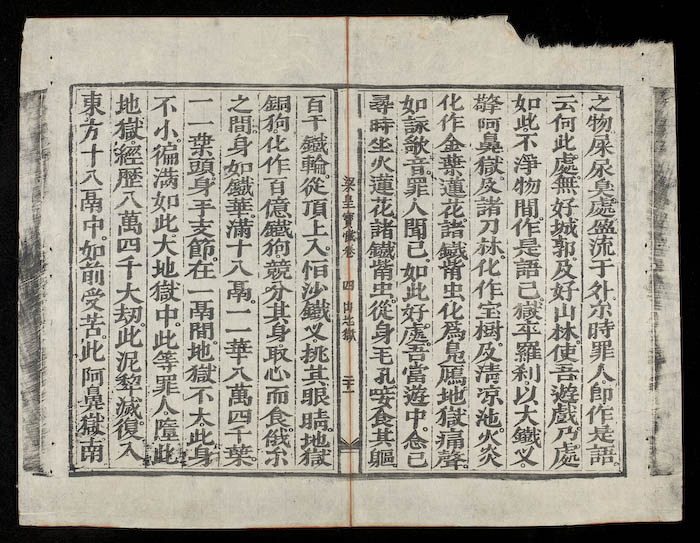 之物屎尿臭處盈流于外尔時罪人即作是語
云何此處無好城郭及好山林使吾遊戲乃處
如此不淨物間作是語已獄卒羅刹以大鐵叉
擎阿鼻獄及諸刀林化作宝樹及清凉池火炎
化作金葉蓮花諸鐵觜虫化爲鳧鴈地獄痛聲
如詠歌音罪人聞已如此好處吾當遊中念已
尋時坐火蓮花諸鐵觜虫從身毛孔唼食其軀
梁皇寶懺卷 四 地獄
百千鐵輪從頂上入恒沙鐵叉挑其眼睛地獄
銅狗化作百億鐵狗競分其身取心而食俄尔
之間身如鐵華滿十八鬲一一華八萬四千葉
一一葉頭身手支節在一鬲間地獄不大此身
不小徧滿如此大地獄中此等罪人墮此
地獄經歷八萬四千大劫此泥犁滅復入
東方十八鬲中如前受苦此阿鼻獄南